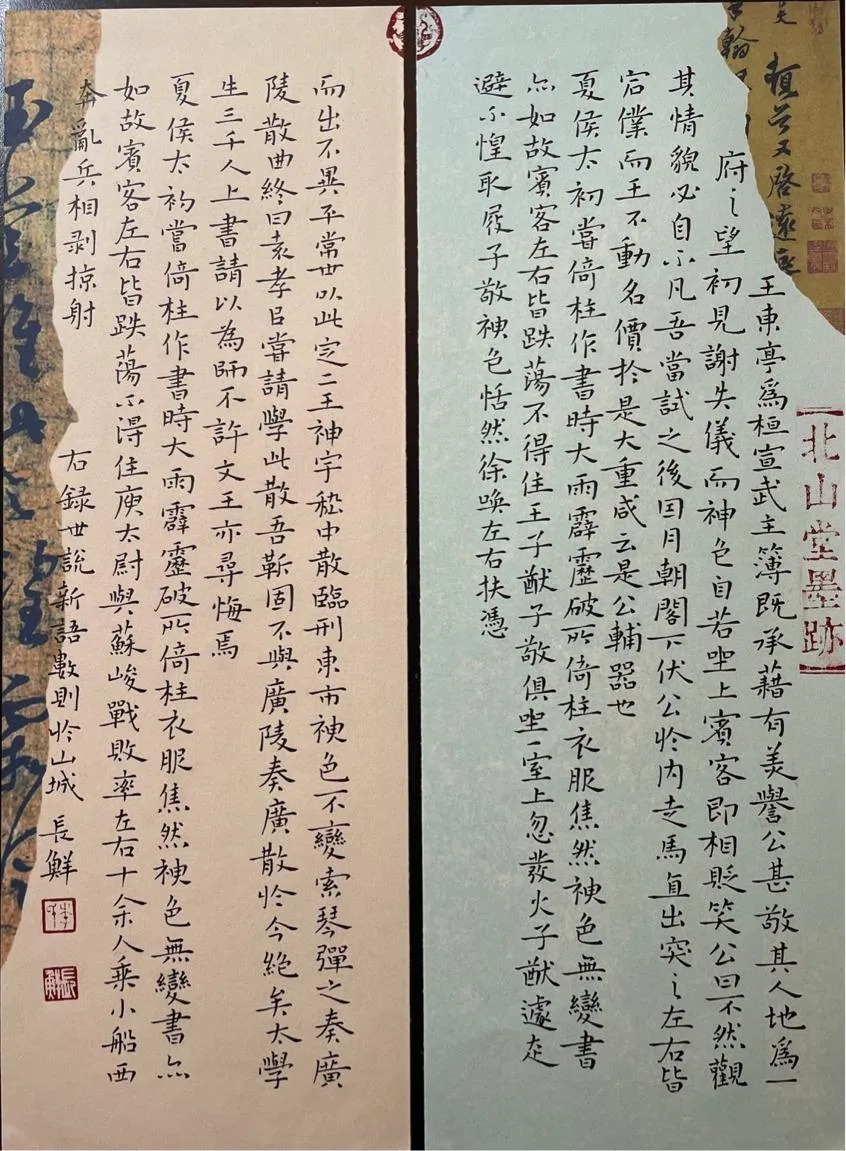 北山堂墨跡
王東亭爲桓宣武主簿既承藉有美譽公甚敬其人地爲一
府之望初見謝失儀而神色自若坐上賓客即相貶笑公曰不然觀
其情貌必自不凡吾當試之後因月朝閣下伏公於內走馬直出突之左右皆
宕僕而王不動名價於是大重咸云是公輔器也
夏侯太初嘗倚柱作書時大雨霹靂破所倚柱衣服焦然神色無變書
亦如故賓客左右皆跌蕩不得住王子猷子敬俱坐一室上忽發火子猷遽走
避不惶取屐子敬神色恬然徐喚左右扶憑
而出不異平常世以此定二王神宇嵇中散臨刑東市神色不變索琴彈之奏廣
陵散曲終曰袁孝尼嘗請學此散吾靳固不與廣陵奏廣散於今絕矣太學
生三千人上書請以為師不許文王亦尋悔焉
夏侯太初嘗倚柱作書時大雨霹靂破所倚柱衣服焦然神色無變書亦
如故賓客左右皆跌蕩不得住庾太尉與蘇峻戰敗率左右十余人乘小船西
奔亂兵相剥掠射
右録世說新語數則於山城 長鮮